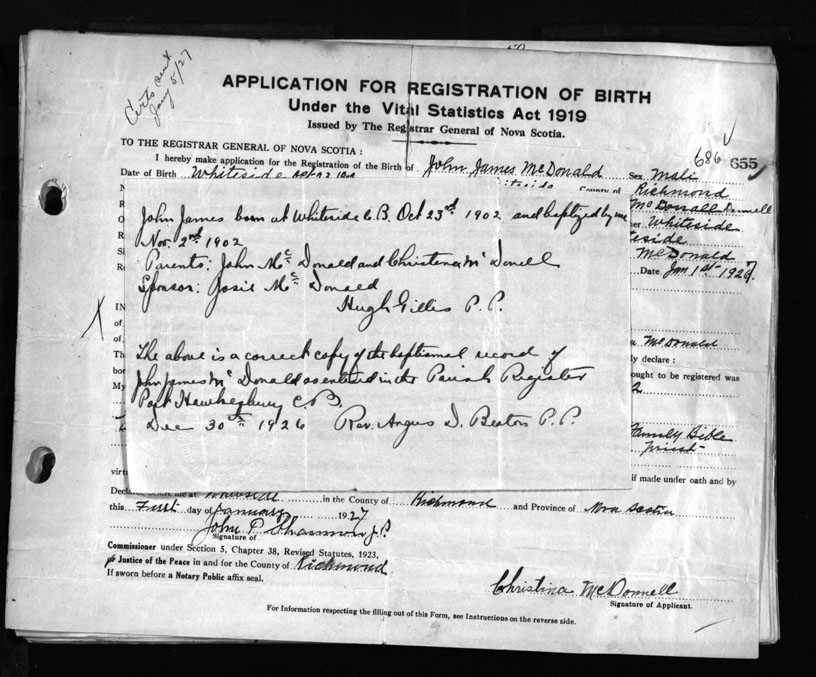 Certs sent
Jany 5/27
APPLICATION FOR REGISTRATION OF BIRTH
Under the Vital Statistics Act 1919
Issued by The Registrar General of Nova Scotia.
TO THE REGISTRAR GENERAL OF NOVA SCOTIA :
686 655
I hereby make application for the Registration of the Birth of John James McDonald Sex Male
Date of Birth Whiteside County of Richmond
John James born at Whiteside C.B. Oct 23rd 1902 and baptized by me
Nov. 2nd 1902
Parents: John Mc Donald and Christena Mc Donell
Sponsor: Josie Mc Donald
Hugh Gillis P.P.
The above is a correct copy of the baptismal record of
John James Mc Donald as entered in the Parish Register
Port Hawkesbury C.B.
Dec 30th 1926 Rev. Angus D. Beaton P.P.
Whiteside
McDonald
Date Jan 1st 1927
McDonald
ly declare :
ought to be registered was
Family Bible
priest
if made under oath and by
virt
Declared before me at Whiteside in the County of Richmond and Province of Nova Scotia
this First day of January 1927
John P. J.P.
Signature of
Commissioner under Section 5, Chapter 38, Revised Statutes, 1923,
Justice of the Peace in and for the County of Richmond
If sworn before a Notary Public affix seal.
Christina McDonnell
Signature of Applicant.
For Information respecting the filling out of this Form, see Instructions on the reverse side.